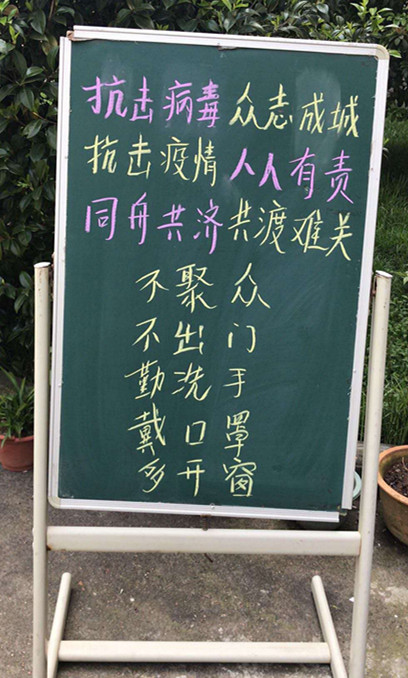 抗击病毒众志成城
抗击疫情人人有责
同舟共济共渡难关
不聚众
不出门
勤洗手
戴口罩
多开窗